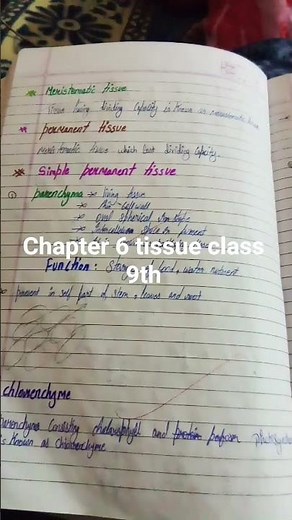 Meristematic tissue
tissue having dividing Capacity is known as meristematic tissue
permanent tissue
Meristematic tissue which lost dividing capacity.
Simple permanent tissue
① parenchyma → living tissue
→ cell wall
→ oval spherical
→ Intercellular space is present
Chapter 6 tissue class
9th
Function: food, water nutrient
present in part of stem, leaves and root
chlorenchyme
parenchyma consisting chlorophyll and perform
is known as chlorenchyme